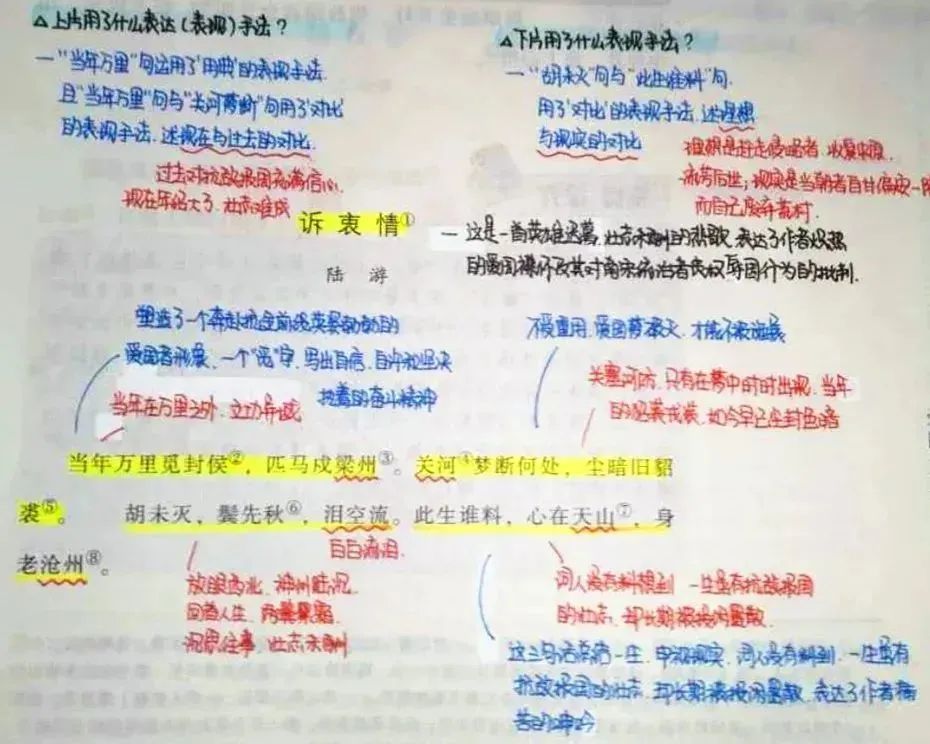 △上片用了什么表达(表现)手法?
一"当年万里"句运用了'用典'的表现手法.
且"当年万里"句与"关河梦断"句用了'对比'
的表现手法.述现在与过去的对比.
过去对抗敌报国充满信心,
现在年纪大了,壮志难成
△下片用了什么表现手法?
一"胡未灭"句与"此生谁料"句.
用了'对比'的表现手法.述理想
与现实的对比
理想是赶走侵略者.收复中原.
流芳后世;现实是当朝者自甘偏安一隅
而自己废弃荒村.
诉衷情①
陆游
一 这是一首英雄迟暮,壮志未酬的悲歌.表达了作者炽热
的爱国情怀及其对南宋统治者丧权辱国行为的批判.
塑造了一个奔赴抗金前线英勇的
爱国者形象.一个"觅"字.写出自信、自许和坚决
执着的奋斗精神
当年在万里之外,立功异域
不受重用.爱国梦破灭.才能不被施展
关塞河防.只有在梦中时时出现.当年
的貂裘戎装.如今早已尘封色暗
当年万里觅封侯②,匹马戍梁州③。关河④梦断何处,尘暗旧貂
裘⑤。 胡未灭,鬓先秋⑥,泪空流。此生谁料,心在天山⑦,身
老沧州⑧。
白白流泪.
放眼西北.神州陆沉.
回首人生.两鬓星霜
沉思往事.壮志未酬
词人没有料想到.一生虽有抗敌报国
的壮志.却长期被投闲置散.
这三句总结一生.审视现实.词人没有料到.一生虽有
抗敌报国的壮志.却长期被投闲置散.表达了作者痛
苦的呻吟